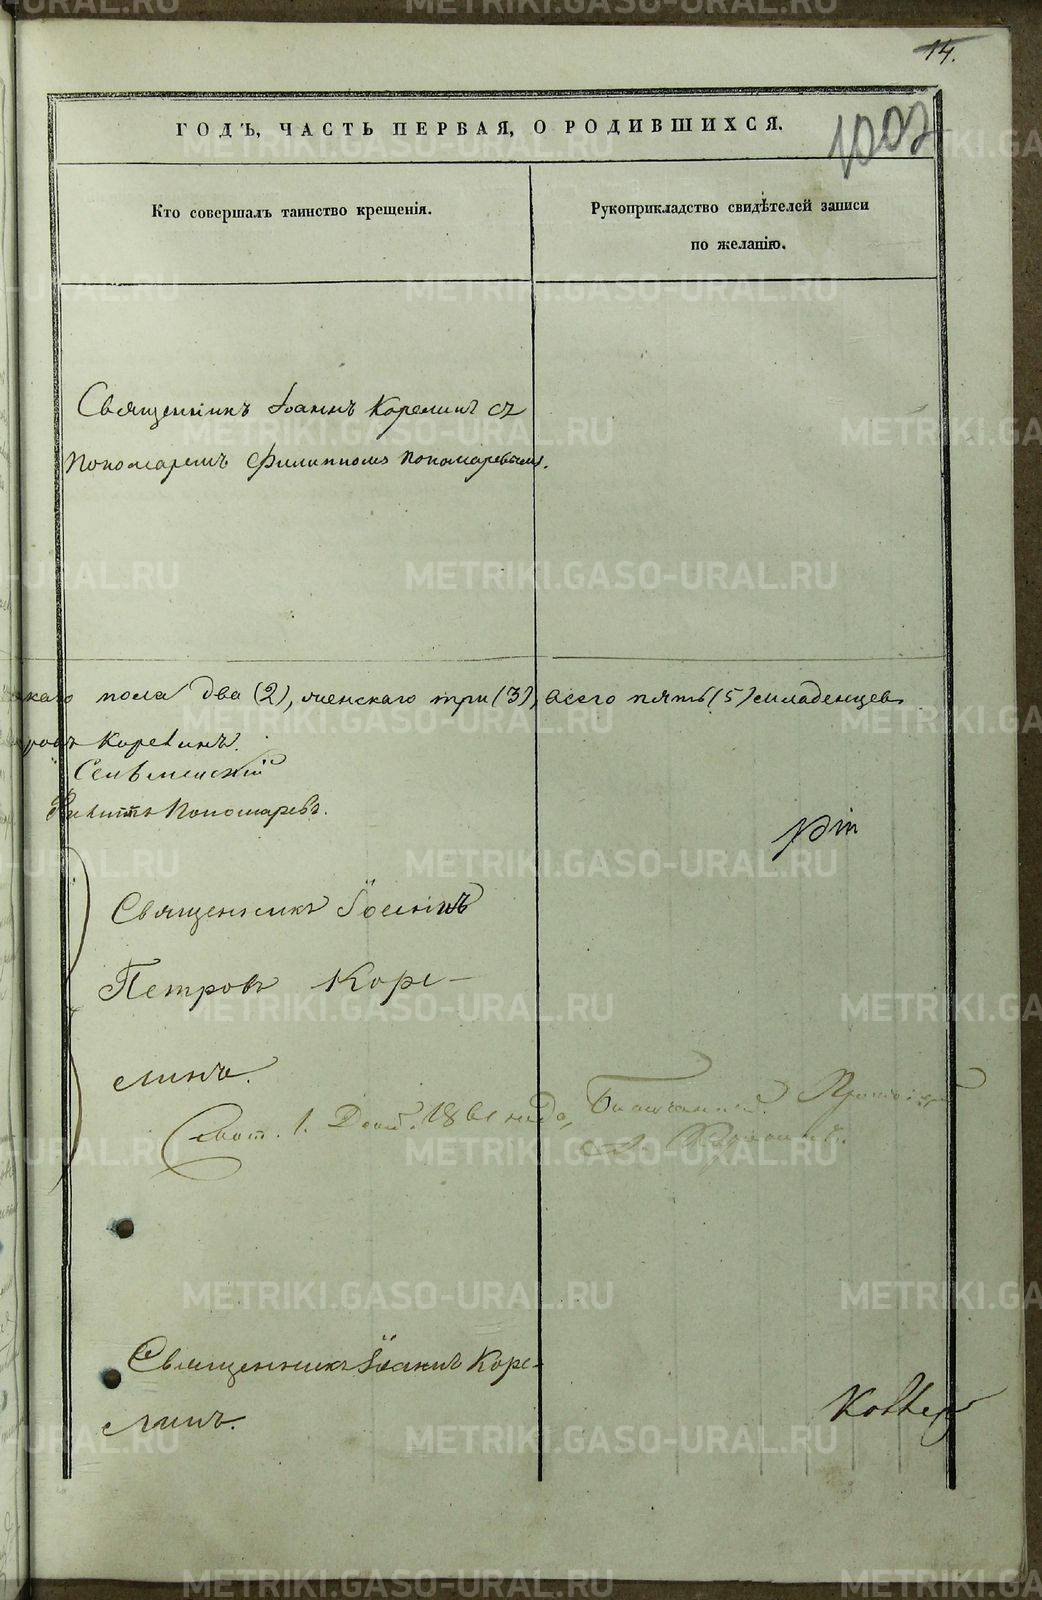 14.
1007
ГОДЪ, ЧАСТЬ ПЕРВАЯ, О РОДИВШИХСЯ.
Кто совершалъ таинство крещенія.
Рукоприкладство свидѣтелей записи
по желанію.
Священникъ Іоаннъ Корелинъ съ
Пономаремъ Филиппомъ Пономаревымъ.
скаго пола два (2), женскаго три (3), всего пять (5) младенцевъ
ровъ Корелинъ.
Филиппъ Пономаревъ.
Священникъ Іоаннъ
Петровъ Коре-
линъ.
1861 года, Благочинный Протоіерей
Священникъ Іоаннъ Коре-
линъ.
METRIKI.GASO-URAL.RU